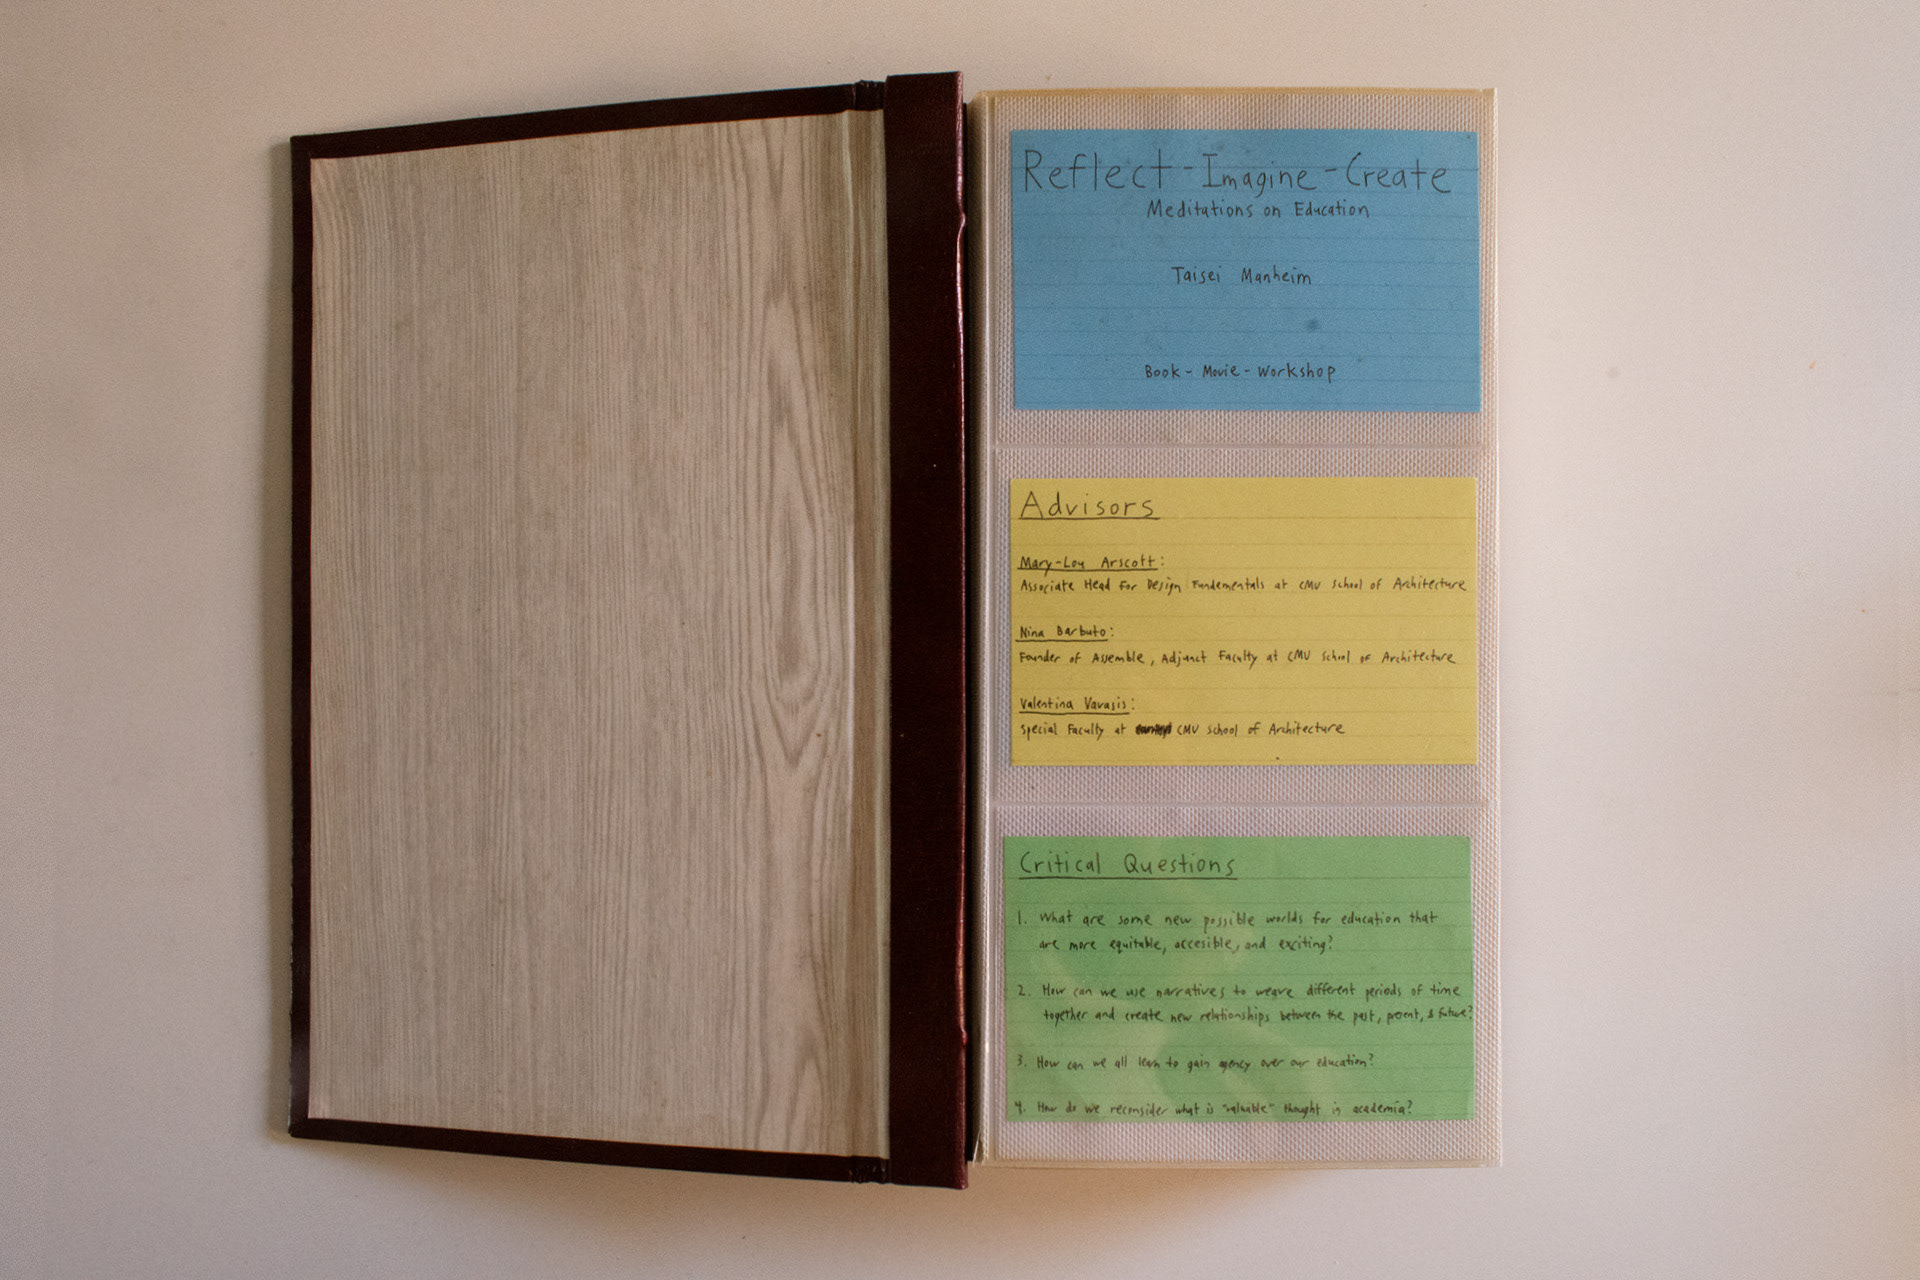 Reflect-Imagine-Create
Meditations on Education
Taisei Manheim
Book - Movie - Workshop
Advisors
Mary-Lou Arscott:
Associate Head for Design Fundementals at CMU School of Architecture
Nina Barbuto:
Founder of Assemble, Adjunct Faculty at CMU School of Architecture
Valentina Vavasis:
Special Faculty at CMU School of Architecture
Critical Questions
1. What are some new possible worlds for education that
are more equitable, accesible, and exciting?
2. How can we use narratives to weave different periods of time
together and create new relationships between the past, present, & future?
3. How can we all learn to gain agency over our education?
4. How do we reconsider what is "valuable" thought in academia?